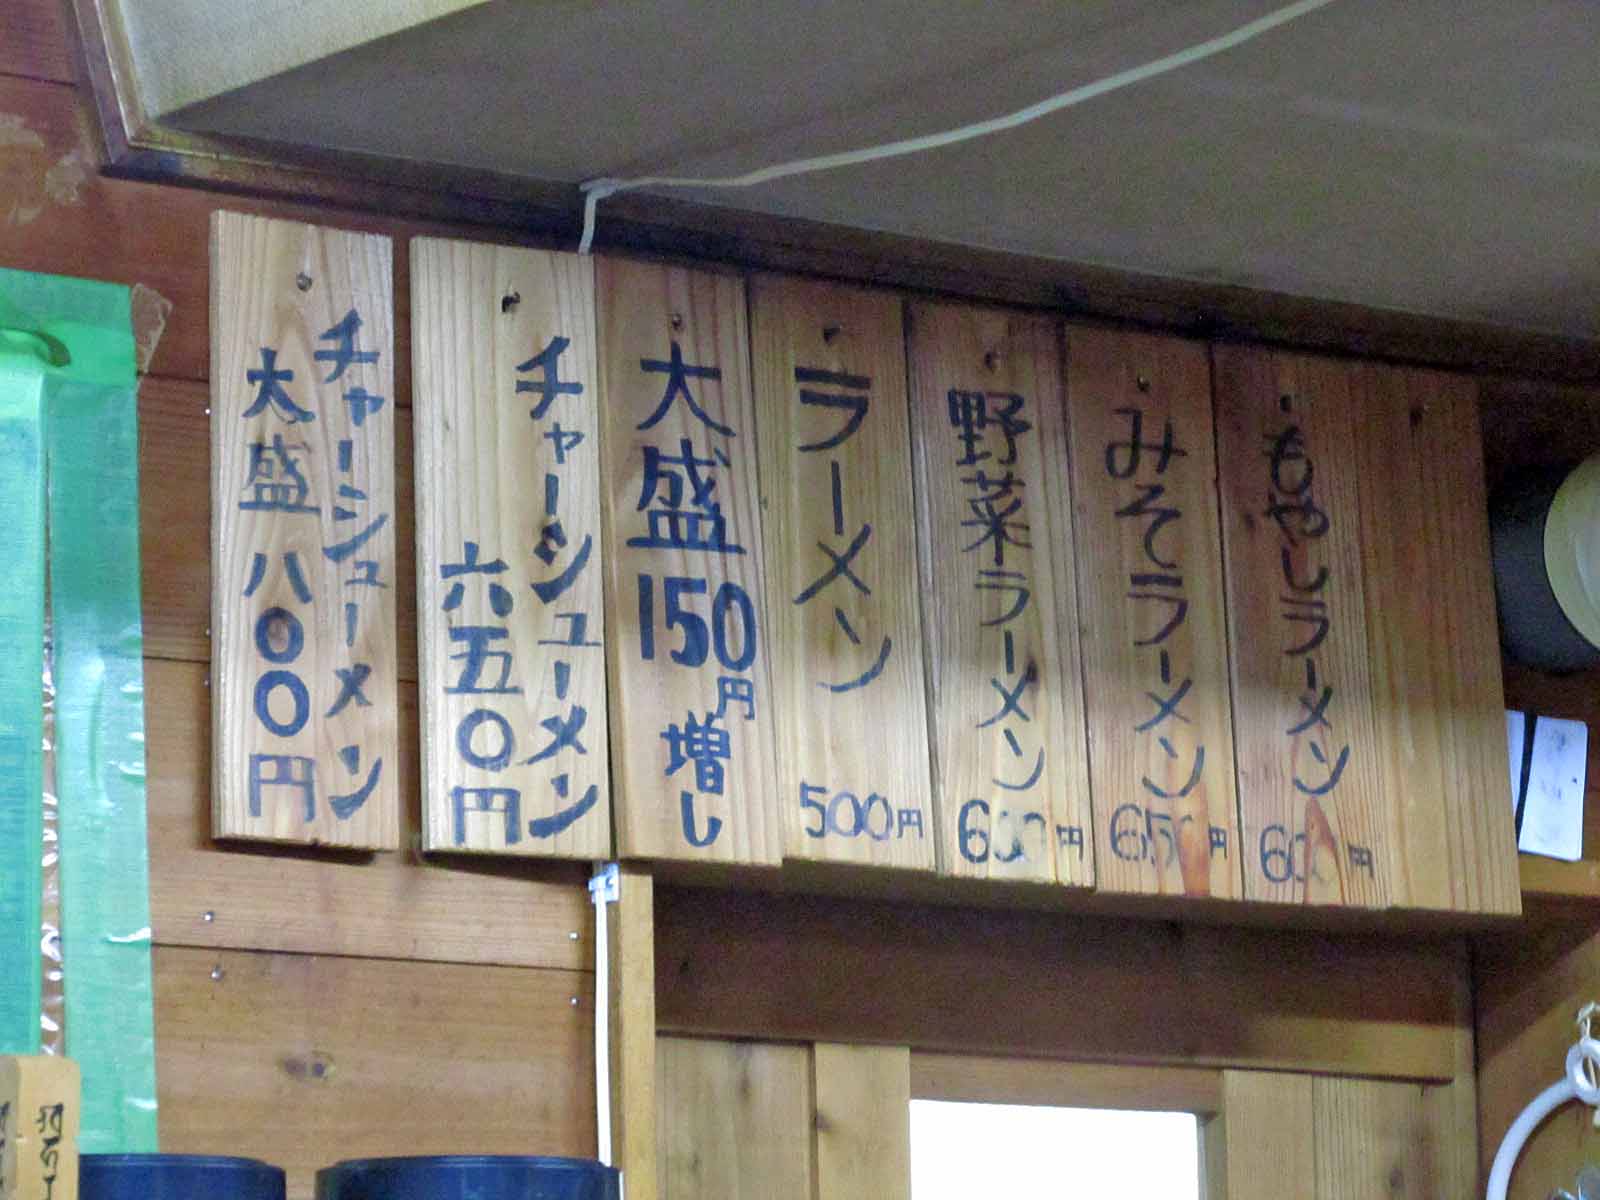 もやしラーメン
600円
みそラーメン
650円
野菜ラーメン
600円
ラーメン
500円
大盛150円増し
チャーシューメン
六五〇円
チャーシューメン
大盛八〇〇円